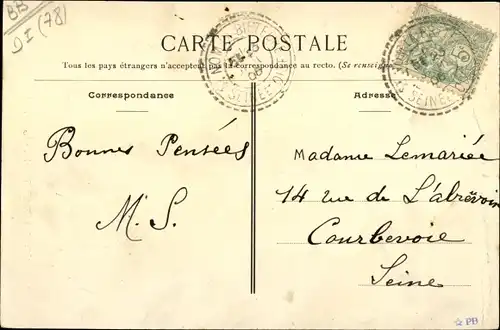 BB
DI (78)
CARTE POSTALE
Tous les pays étrangers n'acceptent pas la correspondance au recto. (Se renseigne
Correspondance
Adresse
Bonnes Pensées
M. S.
Madame Lemariée
14 rue de L'abrevoir
Courbevoie
Seine
PB